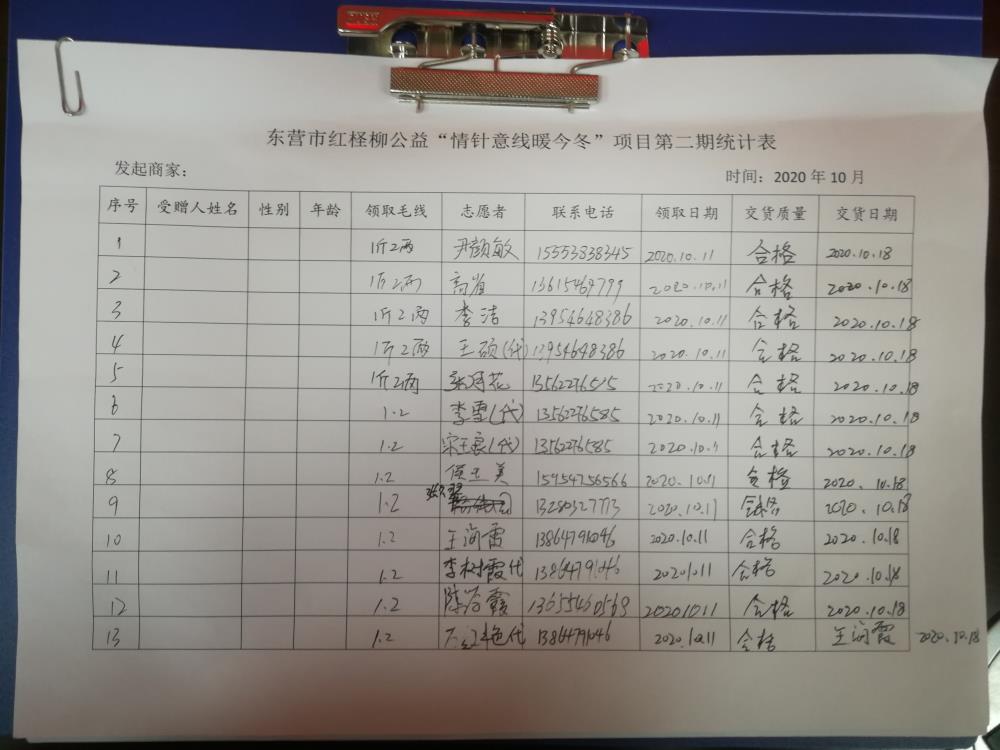 东营市红柽柳公益“情针意线暖今冬”项目第二期统计表
发起商家： 时间：2020年10月
序号 受赠人姓名 性别 年龄 领取毛线 志愿者 联系电话 领取日期 交货质量 交货日期
1 1斤2两 尹颜敏 15553838345 2020.10.11 合格 2020.10.18
2 1斤2两 高省 13615464799 2020.10.11 合格 2020.10.18
3 1斤2两 李洁 13954648386 2020.10.11 合格 2020.10.18
4 1斤2两 王硕(代) 13954648386 2020.10.11 合格 2020.10.18
5 1斤2两 花 2020.10.11 合格 2020.10.18
6 1.2 李雪(代) 13562276585 2020.10.11 合格 2020.10.18
7 1.2 (代) 13562276585 2020.10.11 合格 2020.10.18
8 1.2 侯卫美 15954756566 2020.10.11 合格 2020.10.18
9 1.2 13280327773 2020.10.17 合格 2020.10.18
10 1.2 王海霞 13864791046 2020.10.11 合格 2020.10.18
11 1.2 李树霞代 13864791046 202010.11 合格 2020.10.18
12 1.2 陈海霞 13655460569 20201011 合格 2020.10.18
13 1.2 艳代 13864791046 2020.10.11 合格 王海霞 2020.10.18